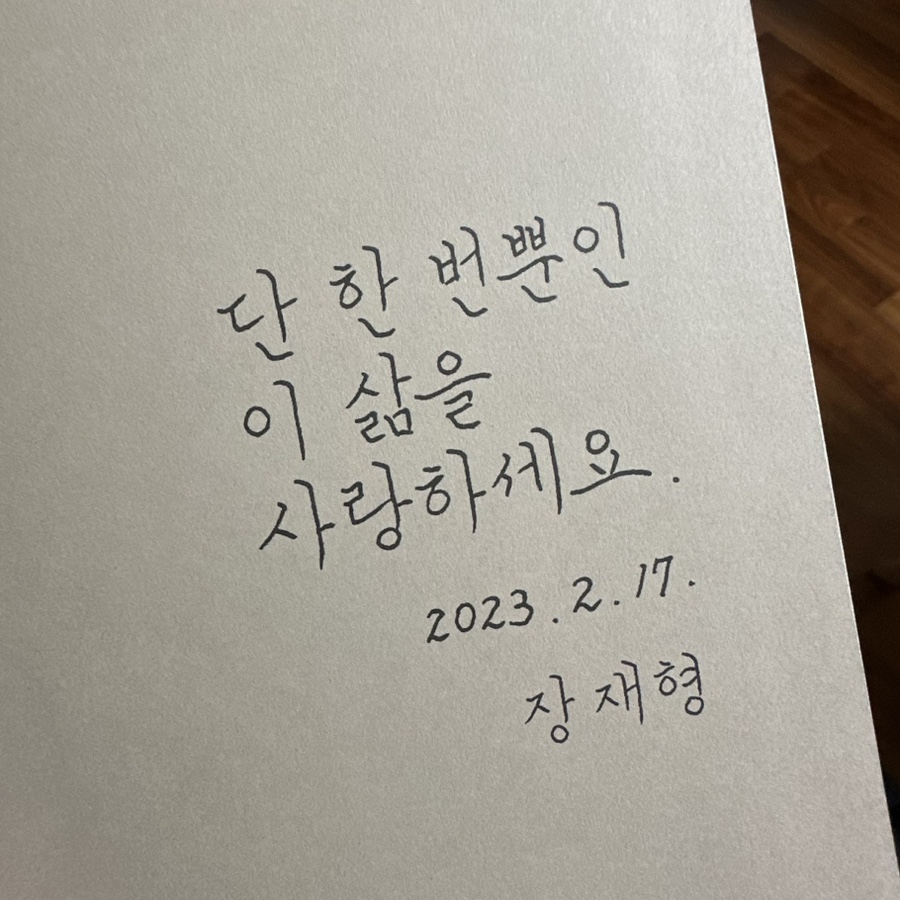 단 한 번뿐인
이 삶을
사랑하세요.
2023.2.17.
장재형